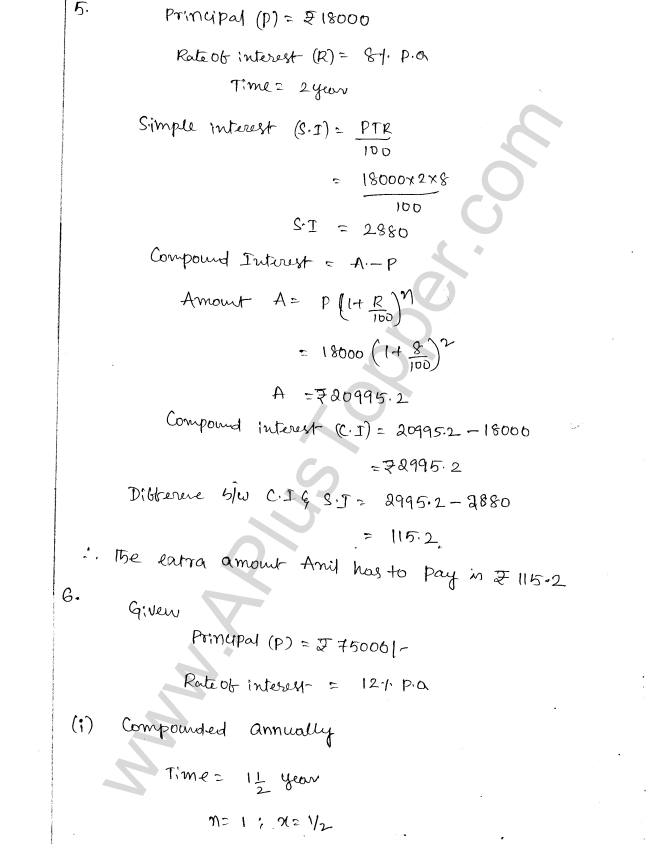 5.
Principal (P) = ₹ 18000
Rate of interest (R) = 8% p.a
Time = 2 year
Simple interest (S.I) = PTR/100
= 18000×2×8/100
S.I = 2880
Compound Interest = A - P
Amount A = P(1+R/100)^n
= 18000(1+8/100)^2
A = ₹20995.2
Compound interest (C.I) = 20995.2 - 18000
= ₹2995.2
Difference b/w C.I & S.I = 2995.2 - 2880
= 115.2.
∴ The extra amount Anil has to pay is ₹ 115.2
6.
Given
Principal (P) = ₹ 75000/-
Rate of interest = 12% p.a
(i) Compounded annually
Time = 1 1/2 year
n = 1 ; x = 1/2
www.APlusTopper.com